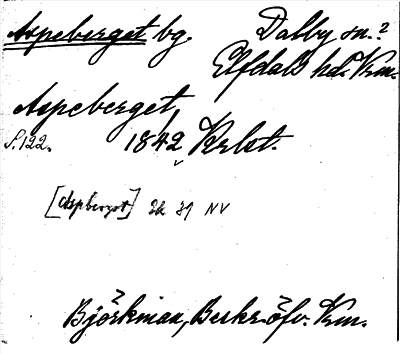 Aspeberget bg. Dalby sn.?
Elfdals hd. Vrm.
Aspeberget,
S. 122. 1842 Krlst.
[Aspberget] Ek 31 NV
Björkman, Beskr. öfv. Vrm.